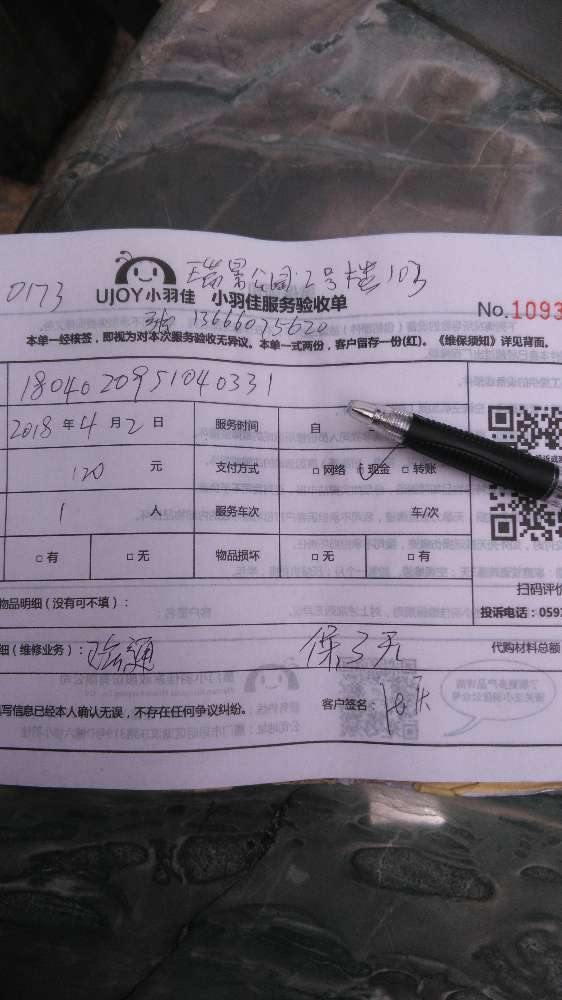 瑞景公园2号楼103
0173
UJOY小羽佳 小羽佳服务验收单
No.1093
13666075620
本单一经核签，即视为对本次服务验收无异议。本单一式两份，客户留存一份(红)。《维保须知》详见背面。
1804020951040331
2018 年 4 月 2 日 服务时间 自
120 元 支付方式 □网络 ☑现金 □转账
1 人 服务车次 车/次
□有 □无 物品损坏 □无 □有
扫码评价
物品明细（没有可不填）：
投诉电话：059
细（维修业务）： 疏通 保3天 代购材料总额
写信息已经本人确认无误，不存在任何争议纠纷。 客户签名：